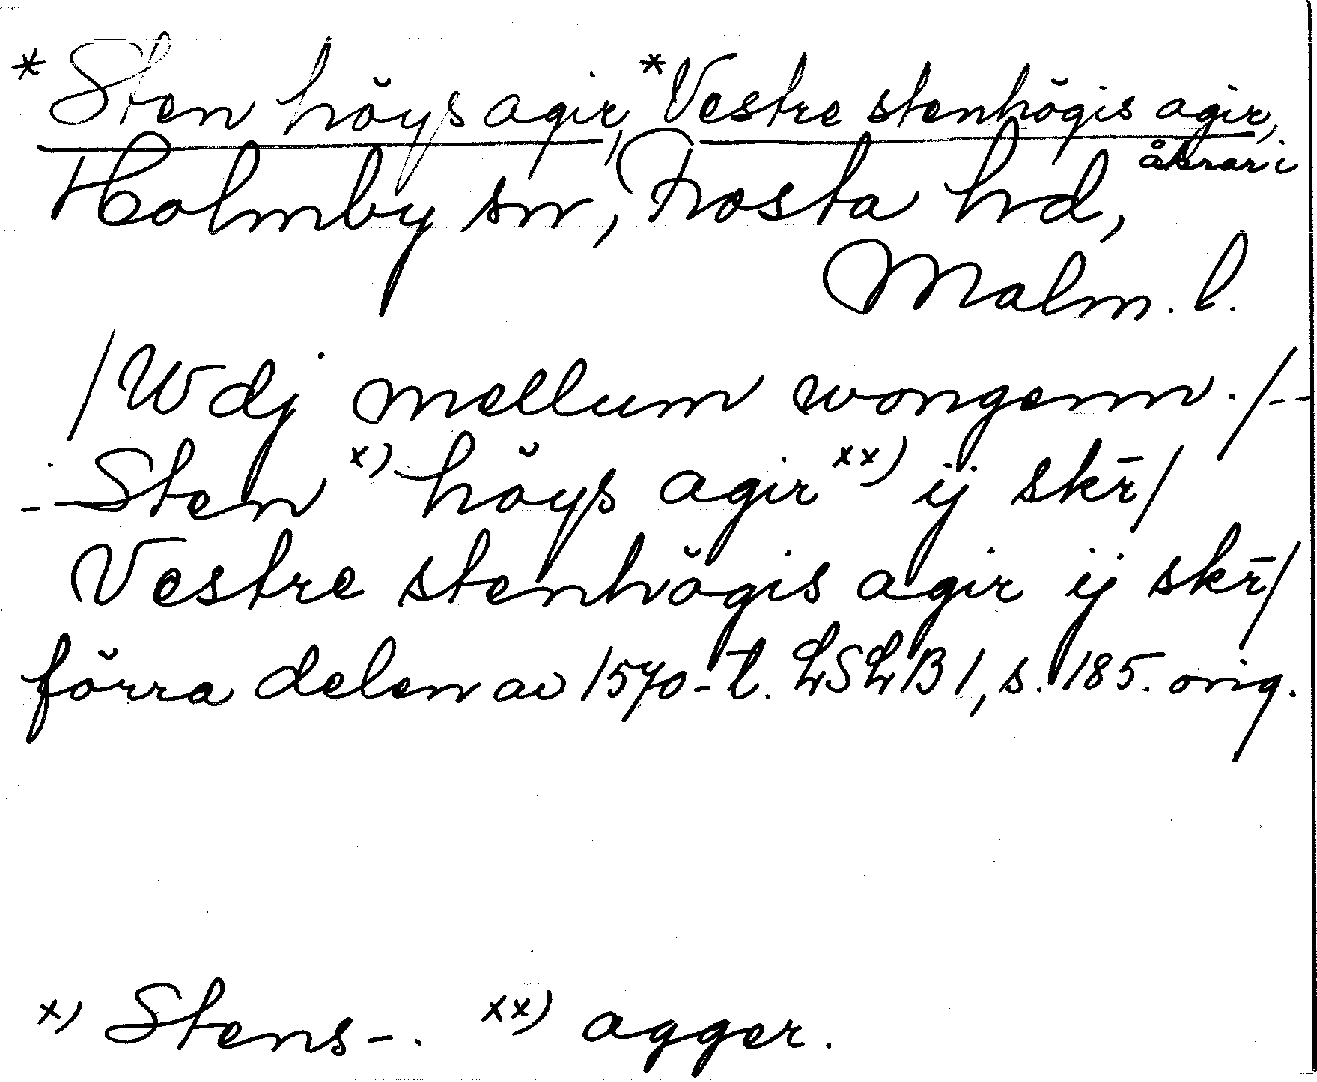 *Sten höys agir, *Vestre stenhögis agir,
åkrar i
Holmby sn, Frosta hd,
Malm. l.
/Wdj mellum wongenn./--
--Sten x) höys agir xx) ij skr̄/
Vestre stenhögis agir ij skr̄/
förra delen av 1570-t. LSLB 1, s. 185. orig.
x) Stens-. xx) agger.